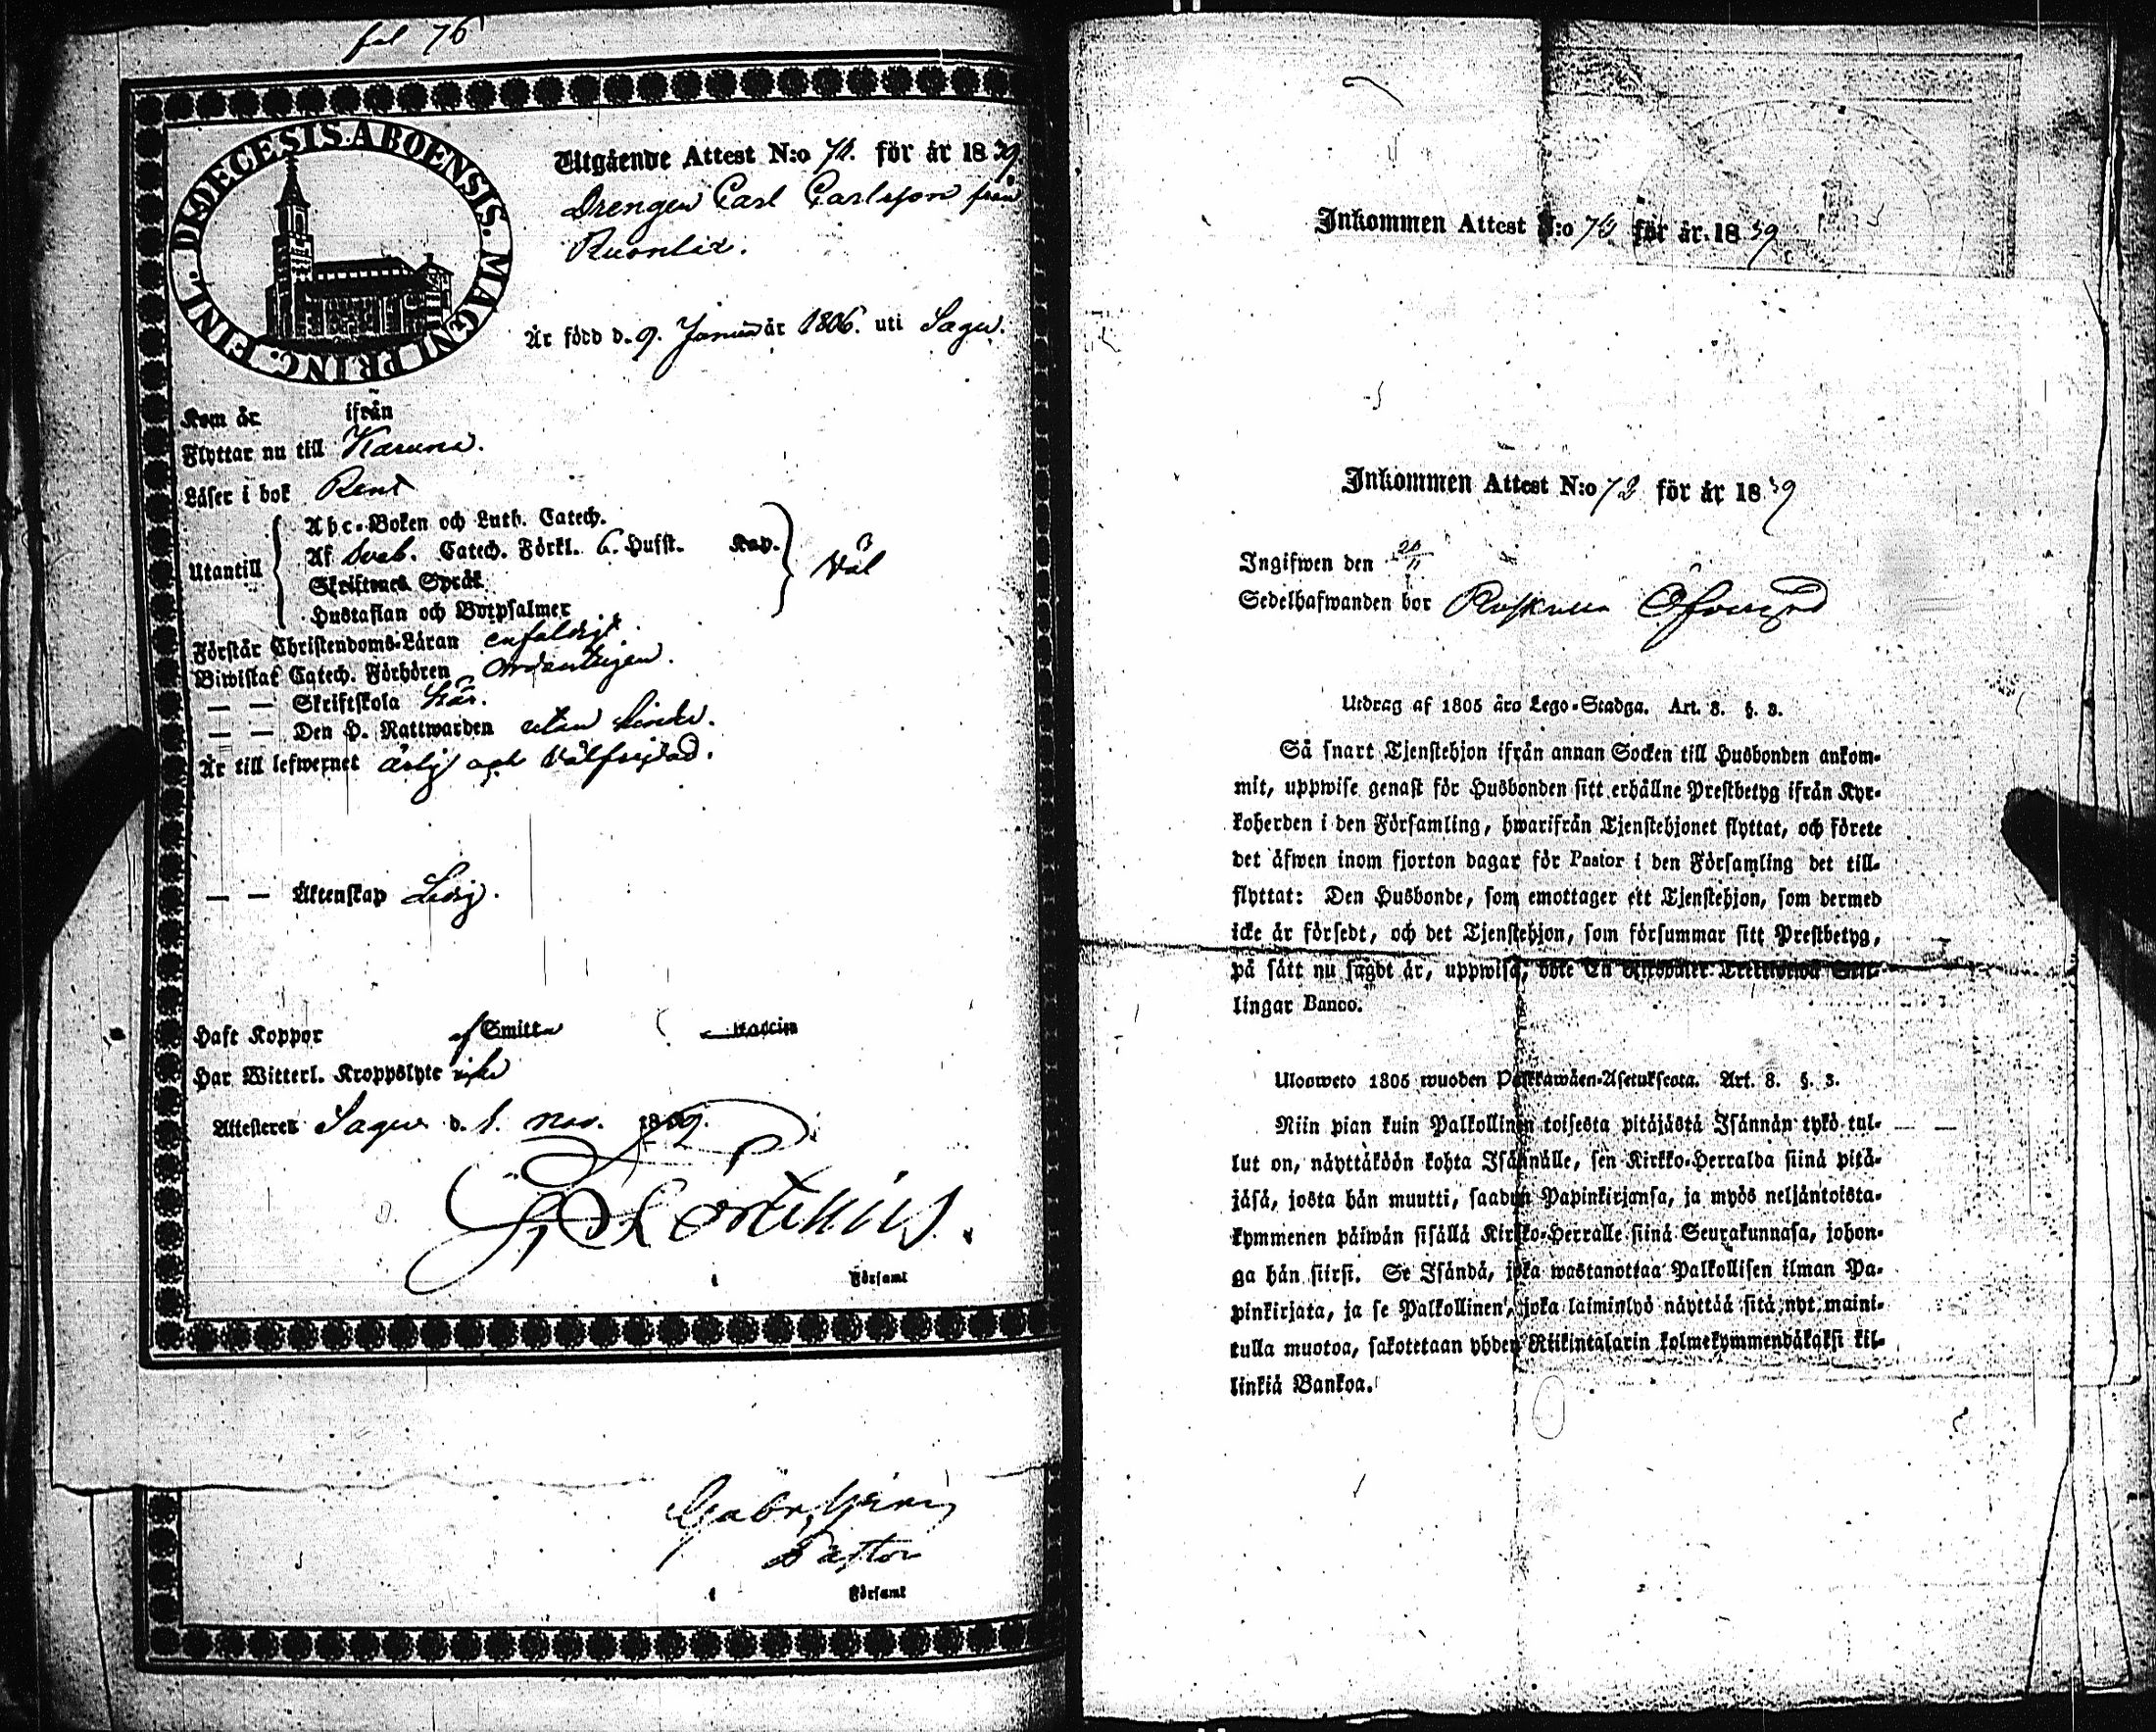 fol 76
DIOECESIS ABOENSIS. MAGNI PRINC. FINL.
Utgående Attest N:o 74. för år 1839
Drengen Carl Carlsson från
Är född d. 9. Januar år 1806. uti Sagu.
Kom år ifrån
Flyttar nu till Karuna.
Läser i bok Rent
Utantill
Abc-Boken och Luth. Catech.
Af Sveb. Catech. Förkl. 6. Hufst. Kap.
Skriftenes Språk
Hustaflan och Botpsalmer
väl
Förstår Christendoms-Läran enfaldigt.
Biwistat Catech. Förhören ordenteligen.
— — Skriftskola här.
— — Den H. Nattwarden utan hinder.
Är till lefwernet ärlig och välfrejdad.
— — Äktenskap Ledig.
Haft Koppor af Smitta Vaccin
Har Witterl. Kroppslyte icke
Attesteras Sagu d. 1. nov. 1839.
i Församl
Pastor
i Församl
Inkommen Attest N:o för år 1839
Inkommen Attest N:o 72 för år 1839
Ingifwen den
Sedelhafwanden bor
Utdrag af 1805 års Lego-Stadga. Art. 8. §. 3.
Så snart Tjenstehjon ifrån annan Socken till Husbonden ankom-
mit, uppwise genast för Husbonden sitt erhållne Prestbetyg ifrån Kyr-
koherden i den Församling, hwarifrån Tjenstehjonet flyttat, och förete
det äfwen inom fjorton dagar för Pastor i den Församling det till-
flyttat: Den Husbonde, som emottager ett Tjenstehjon, som dermed
icke är försedt, och det Tjenstehjon, som försummar sitt Prestbetyg,
på sätt nu sagdt är, uppwisa, böte En Riksdaler Trettiotwå Skil-
lingar Banco.
Ulosweto 1805 wuoden Palkkawäen-Asetuksesta. Art. 8. §. 3.
Niin pian kuin Palkollinen toisesta pitäjästä Isännän tykö tul-
lut on, näyttäköön kohta Isännälle, sen Kirkko-Herralda siinä pitä-
jäsä, josta hän muutti, saadun Papinkirjansa, ja myös neljäntoista-
kymmenen päiwän sisällä Kirkko-Herralle siinä Seurakunnasa, johon-
ga hän siirsi. Se Isändä, joka wastanottaa Palkollisen ilman Pa-
pinkirjata, ja se Palkollinen, joka laiminlyö näyttää sitä nyt maini-
tulla muotoa, sakotetaan yhden Riikintalarin kolmekymmendäkaksi kil-
linkiä Bankoa.